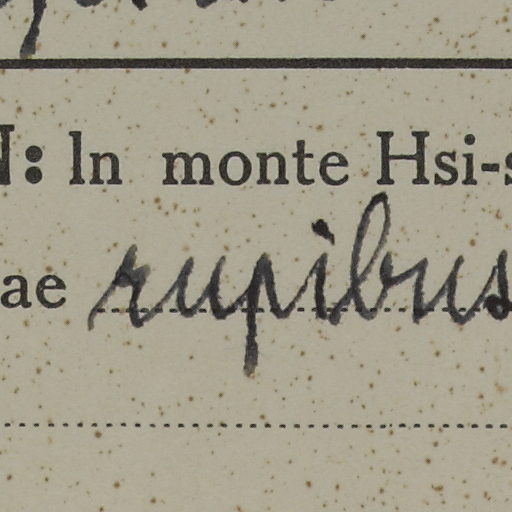 N: In monte Hsi-s
ae rupibus